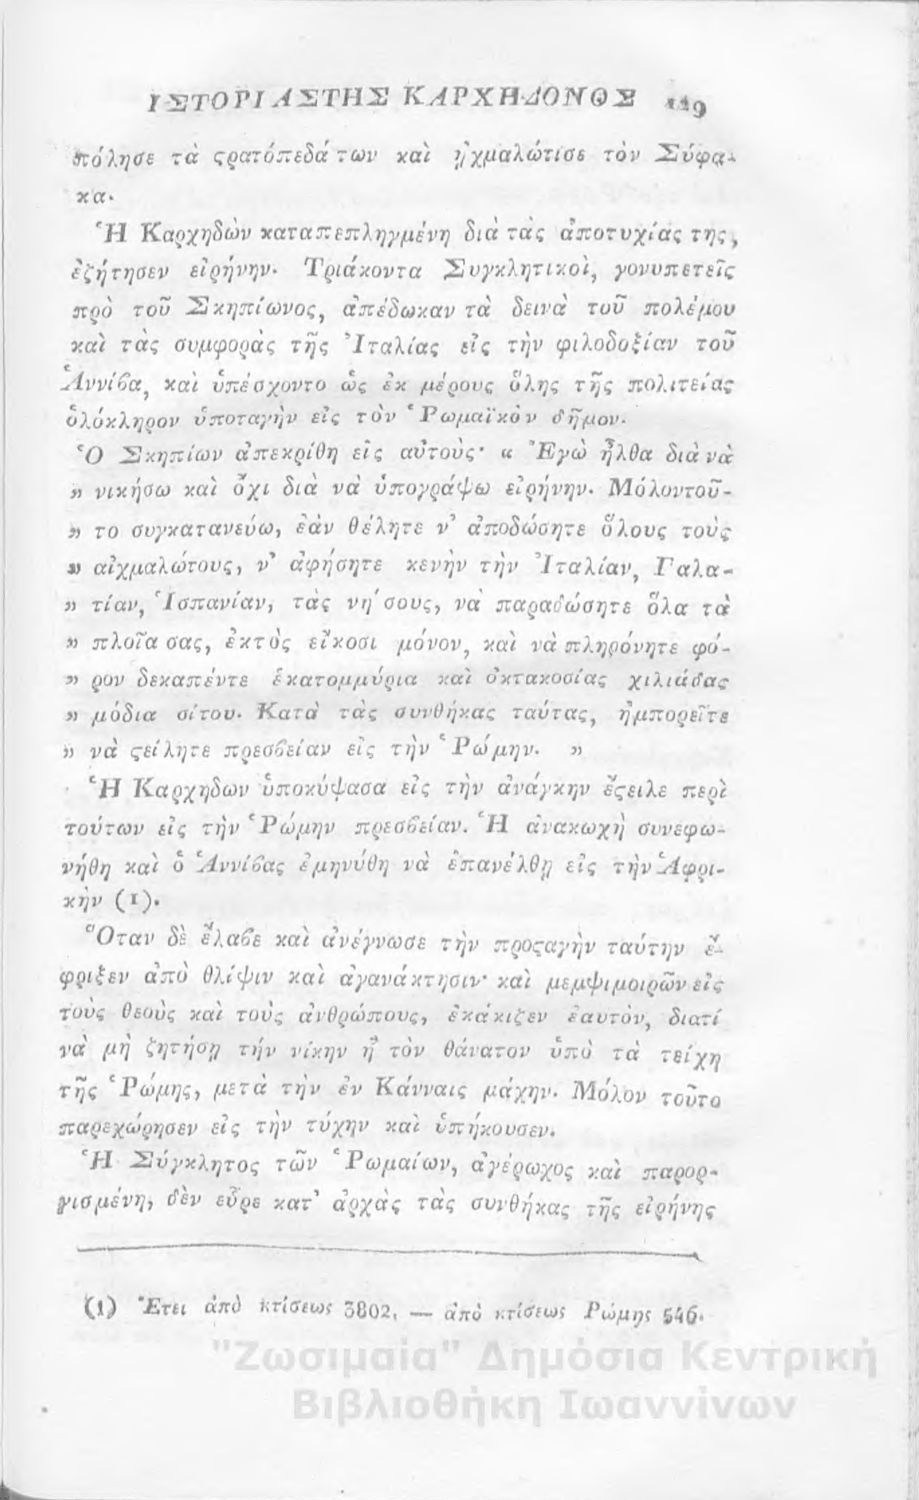 ΙΣΤΟΡΙΑ ΣΤΗΣ ΚΑΡΧΗΔΟΝΟΣ 119
πόλησε τὰ ϛρατόπεδά των καὶ ᾐχμαλώτισε τὸν Σύφα-
κα.
Ἡ Καρχηδὼν καταπεπληγμένη διὰ τὰς ἀποτυχίας της,
ἐζήτησεν εἰρήνην. Τριάκοντα Συγκλητικοὶ, γονυπετεῖς
πρὸ τοῦ Σκηπίωνος, ἀπέδωκαν τὰ δεινὰ τοῦ πολέμου
καὶ τὰς συμφορὰς τῆς Ἰταλίας εἰς τὴν φιλοδοξίαν τοῦ
Ἀννίβα, καὶ ὑπέσχοντο ὡς ἐκ μέρους ὅλης τῆς πολιτείας
ὁλόκληρον ὑποταγὴν εἰς τὸν Ῥωμαϊκὸν δῆμον.
Ὁ Σκηπίων ἀπεκρίθη εἰς αὐτούς· « Ἐγὼ ἦλθα διὰ νὰ
» νικήσω καὶ ὄχι διὰ νὰ ὑπογράψω εἰρήνην. Μόλοντοῦ-
» το συγκατανεύω, ἐὰν θέλητε ν' ἀποδώσητε ὅλους τοὺς
» αἰχμαλώτους, ν' ἀφήσητε κενὴν τὴν Ἰταλίαν, Γαλα-
» τίαν, Ἱσπανίαν, τὰς νήσους, νὰ παραδώσητε ὅλα τὰ
» πλοῖα σας, ἐκτὸς εἴκοσι μόνον, καὶ νὰ πληρόνητε φό-
» ρον δεκαπέντε ἑκατομμύρια καὶ ὀκτακοσίας χιλιάδας
» μόδια σίτου. Κατὰ τὰς συνθήκας ταύτας, ἠμπορεῖτε
» νὰ ϛείλητε πρεσβείαν εἰς τὴν Ῥώμην. »
Ἡ Καρχηδων ὑποκύψασα εἰς τὴν ἀνάγκην ἔϛειλε περὶ
τούτων εἰς τὴν Ῥώμην πρεσβείαν. Ἡ ἀνακωχὴ συνεφω-
νήθη καὶ ὁ Ἀννίβας ἐμηνύθη νὰ ἐπανέλθῃ εἰς τὴν Ἀφρι-
κὴν (1).
Ὅταν δὲ ἔλαβε καὶ ἀνέγνωσε τὴν προϛαγὴν ταύτην ἔ-
φριξεν ἀπὸ θλίψιν καὶ ἀγανάκτησιν· καὶ μεμψιμοιρῶν εἰς
τοὺς θεοὺς καὶ τοὺς ἀνθρώπους, ἐκάκιζεν ἑαυτὸν, διατί
νὰ μὴ ζητήσῃ τὴν νίκην ἢ τὸν θάνατον ὑπὸ τὰ τείχη
τῆς Ῥώμης, μετὰ τὴν ἐν Κάνναις μάχην. Μόλον τοῦτο
παρεχώρησεν εἰς τὴν τύχην καὶ ὑπήκουσεν.
Ἡ Σύγκλητος τῶν Ῥωμαίων, ἀγέρωχος καὶ παρορ-
γισμένη, δὲν εὗρε κατ' ἀρχὰς τὰς συνθήκας τῆς εἰρήνης
(1) Ἔτει ἀπὸ κτίσεως 3802. — ἀπὸ κτίσεως Ῥώμης 546.
"Ζωσιμαία" Δημόσια Κεντρική
Βιβλιοθήκη Ιωαννίνων